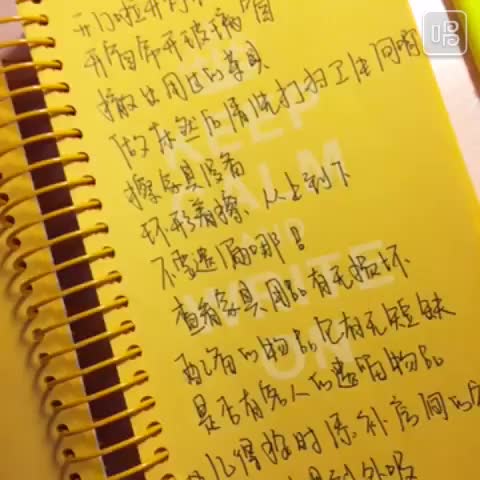 开窗帘开玻璃窗
撤出用过的家具
做床然后清洗打扫卫生间啊
擦家具设备
环形着擦、从上到下
不要遗漏哪！
查看家具用品有无损坏
配备的物品它有无短缺
是否有客人的遗留物品
记得按时添补房间的
KEEP
CALM
AND
WRITE
ON
唱